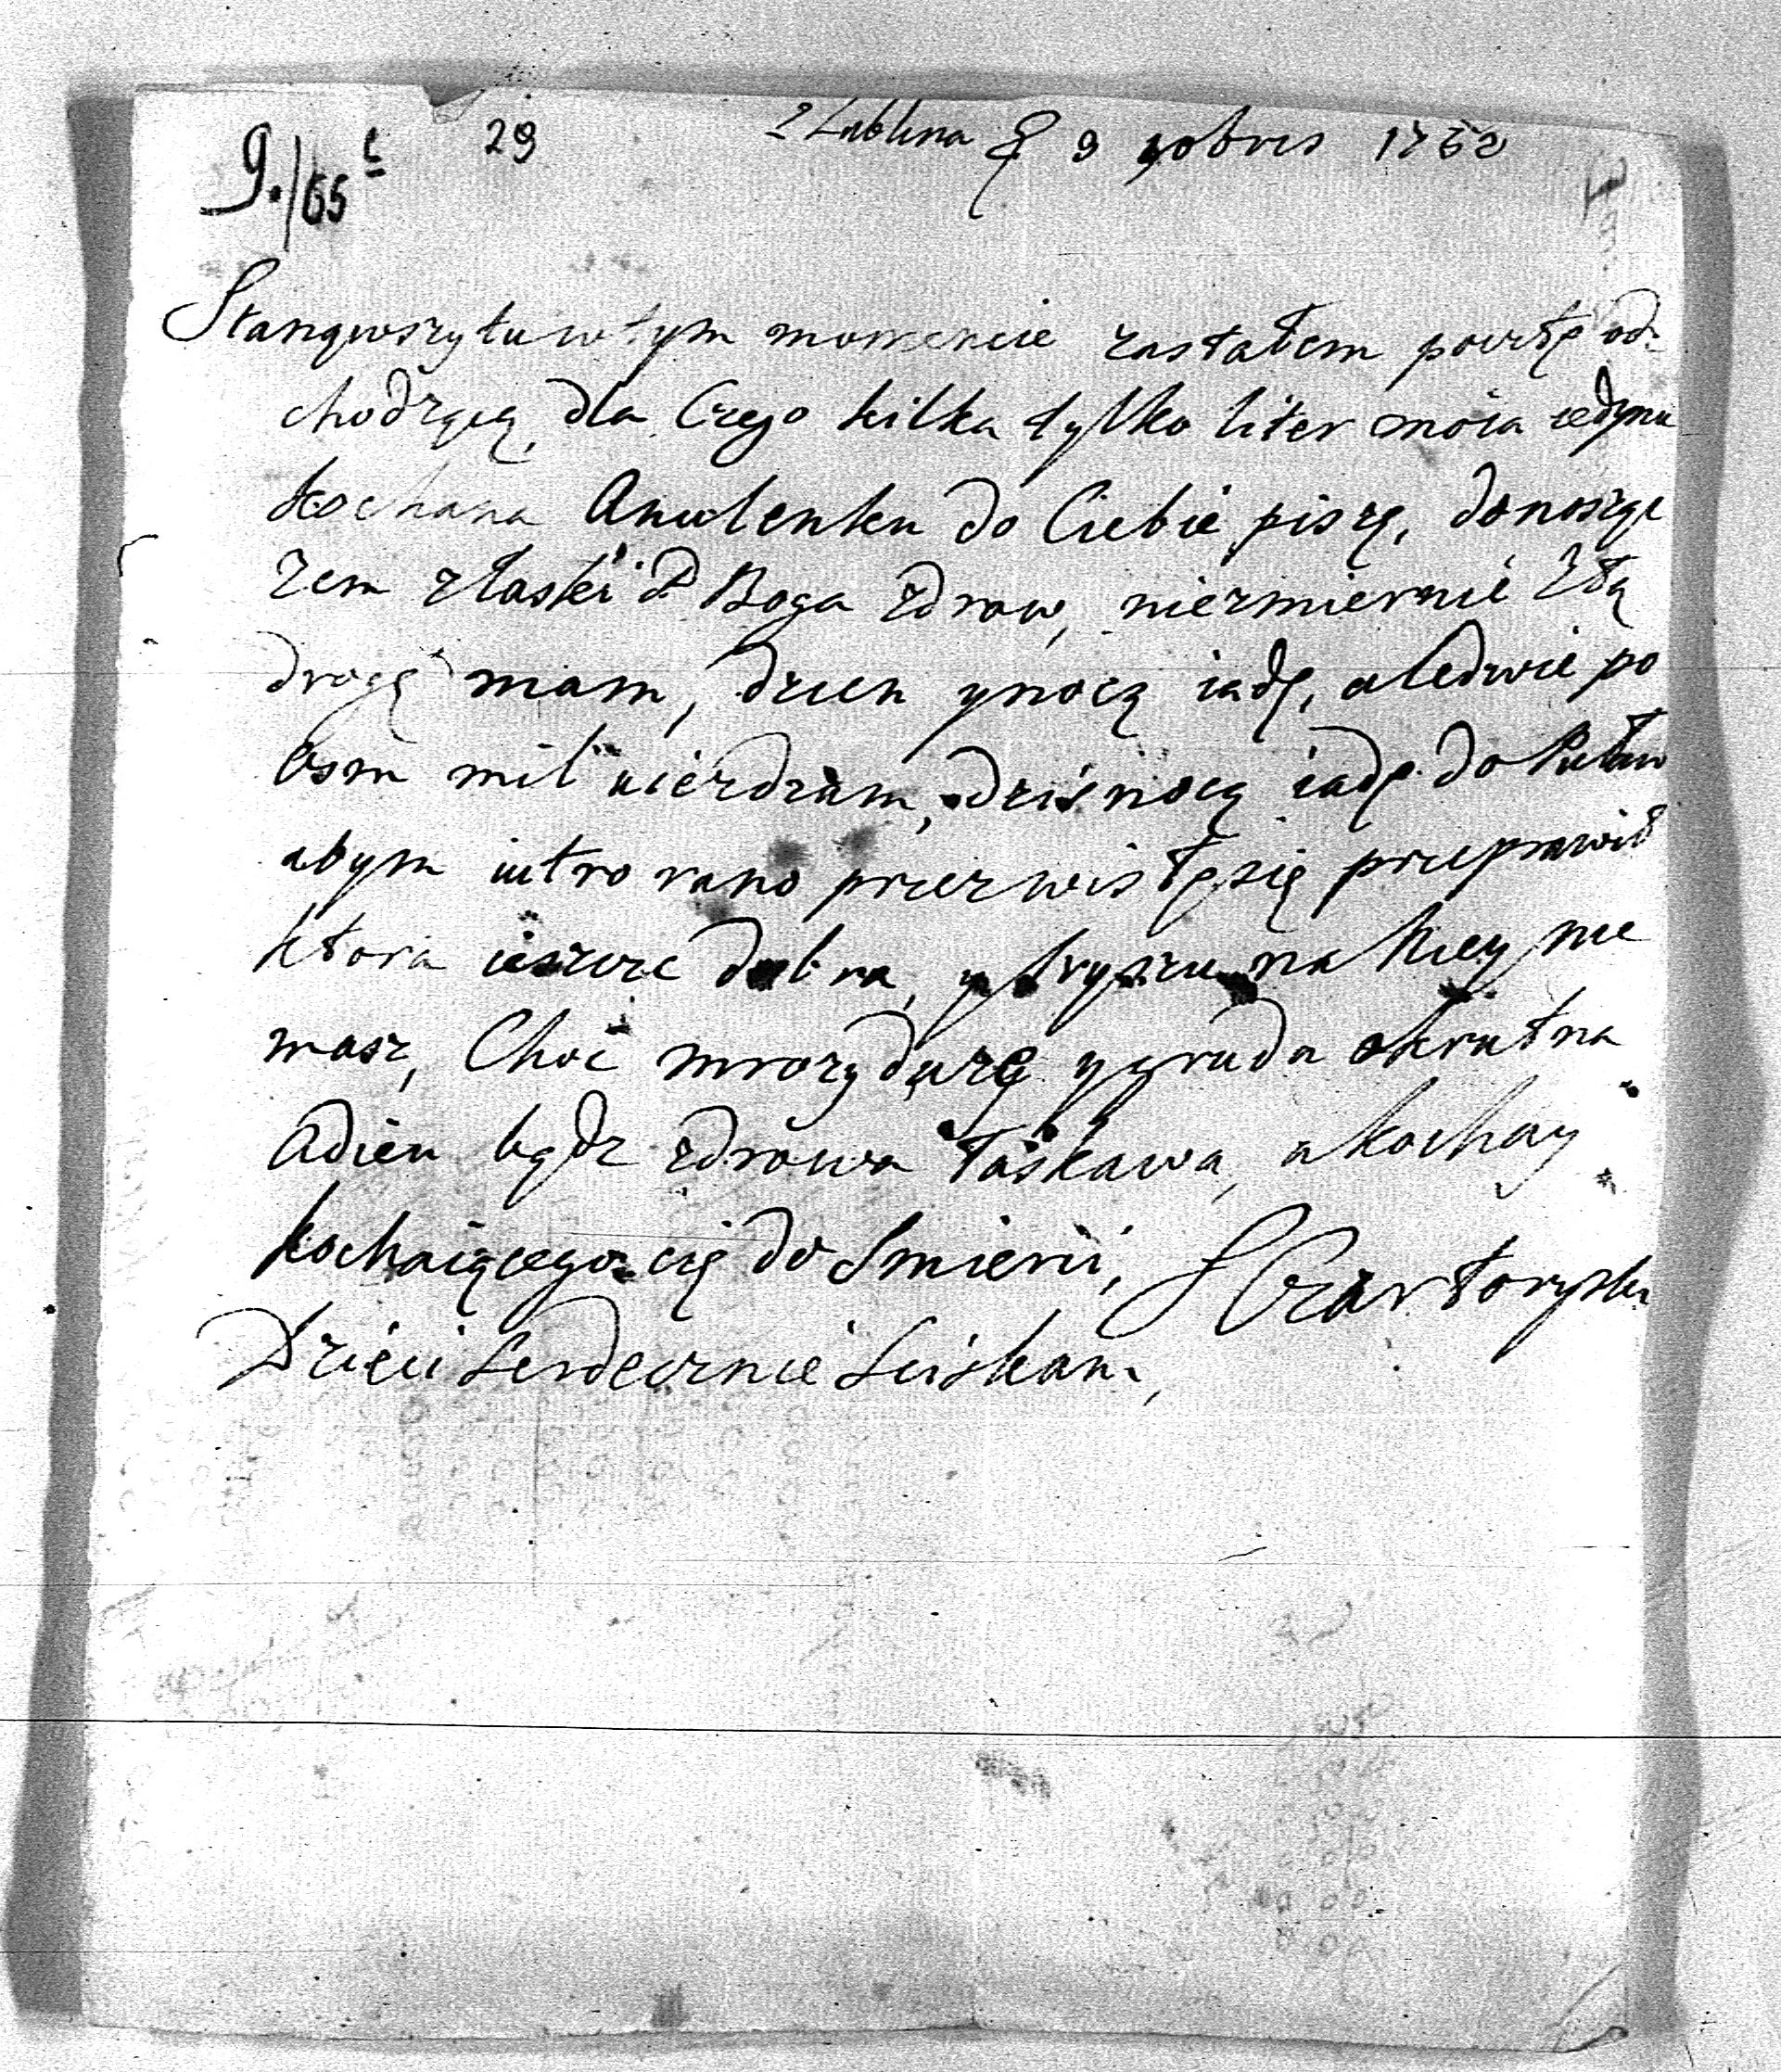 9./65 29 z Lublina d 9 9obris 1762
Stanąwszy tu w tym momencie zastałem pocztę od-
chodzącą, dla Czego kilka tylko liter moia iedyna
kochana Anulenku do Ciebie piszę, donosząc
żem z łaski P Boga zdrow, niezmiernie złą
drogę mam, dzien y nocą iadę, a ledwie po
osm mil uieżdżam, dziś nocą iadę do Puław
abym iutro rano przez wisłę się przeprawił
ktora ieszcze dobra, y kryszu na Niey nie
masz, Choć mrozy duże y gruda okrutna
Adieu bądz zdrowa łaskawa, a kochay
kochaiącego cię do Smierci, Czartoryski
Dzieci Serdecznie Sciskam,